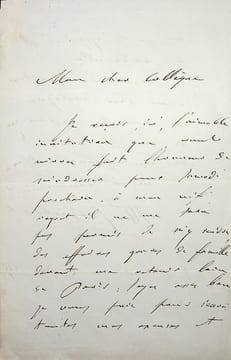 Mon cher Collègue
Je reçois, ici, l'aimable
invitation que vous
m'avez fait l'honneur de
m'adresser pour samedi
prochain, à mon vif
regret il ne me sera
pas permis de m'y rendre
des affaires graves de famille
devant me retenir loin
de Paris; soyez assez bon
je vous prie pour
toutes mes excuses et